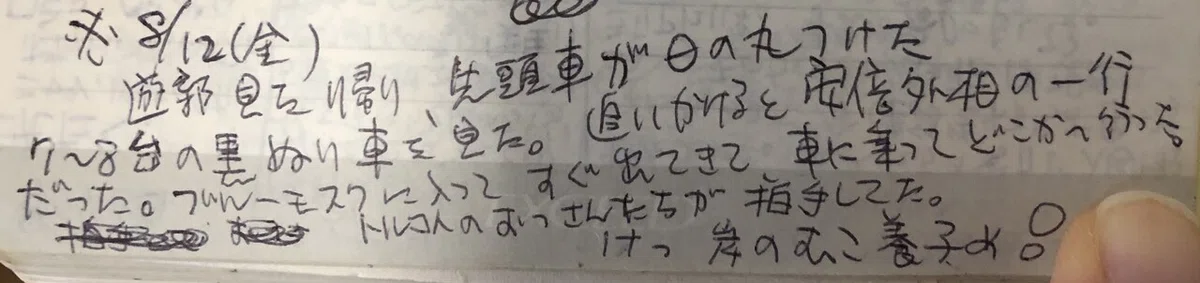 ※ 8/12(金)
遊郭見た帰り、先頭車が日の丸つけた
7~8台の黒ぬり車を見た。追いかけると安倍外相の一行
だった。ブルーモスクに入って すぐ出てきて 車に乗ってどこかへ行った。
トルコ人のおっさんたちが 拍手してた。
けっ 岸のむこ養子め!